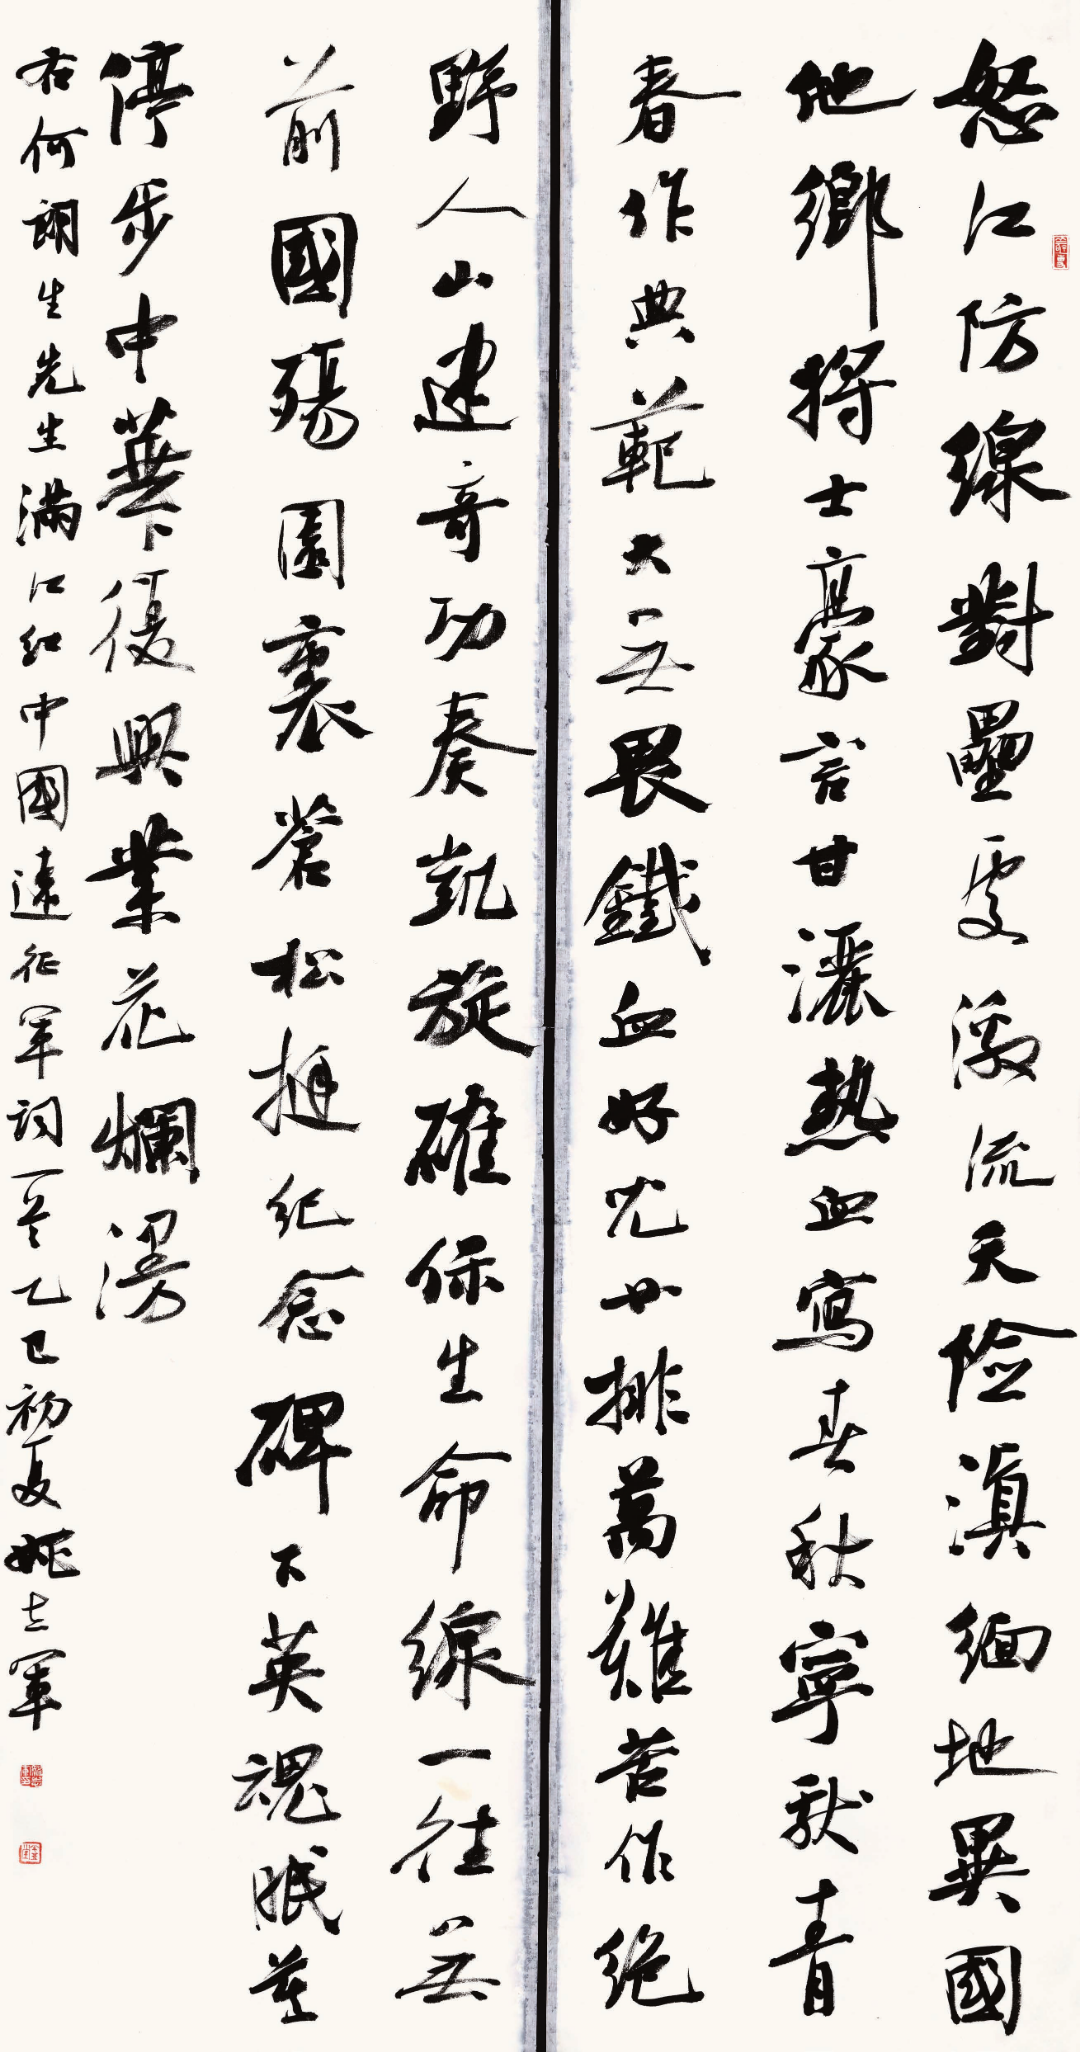 怒江防線對壘處激流天險滇緬地異國
他鄉將士豪言甘灑熱血寫春秋寧獻青
春作典範大無畏鐵血好兒女排萬難苦作絕
野人山建奇功奏凱旋確保生命線一往無
前國殤園裏蒼松挺紀念碑下英魂眠莫
停步中華復興業花爛漫
右何朗生先生滿江紅中國遠征軍詞一首乙巳初夏姚志軍